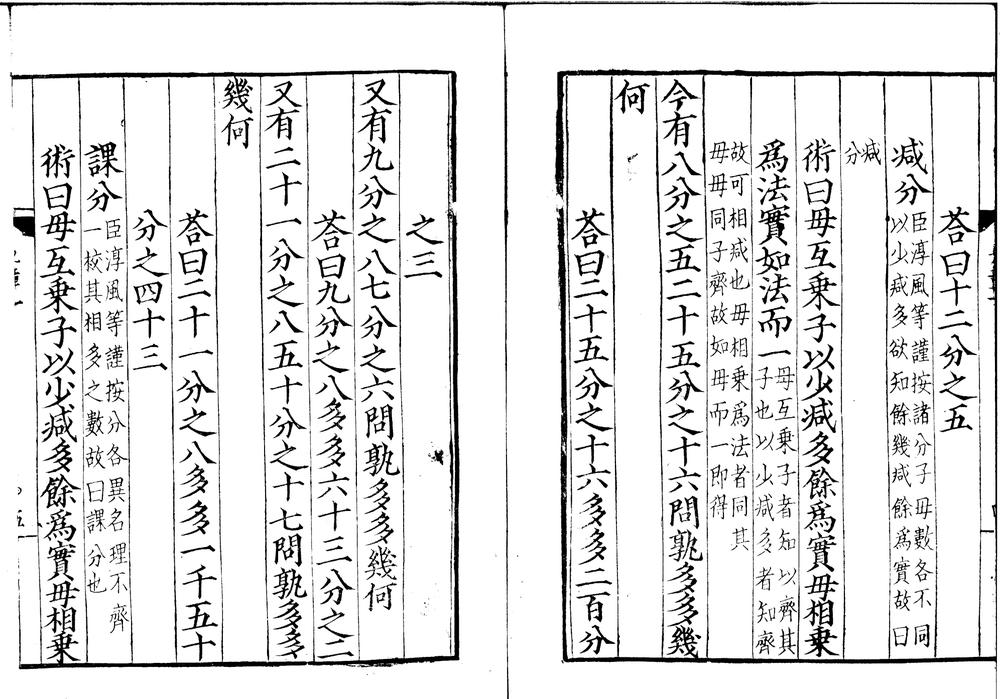 荅曰十二分之五
减分臣淳風等謹按諸分子毋數各不同
以少减多欲知餘幾减餘爲實故曰
减
分
術曰毋互乗子以少减多餘爲實毋相乗
爲法實如法而一毋互乗子者知以齊其
子也以少减多者知齊
故可相减也毋相乗爲法者同其
毋毋同子齊故如毋而一即得
今有八分之五二十五分之十六問孰多多幾
何
荅曰二十五分之十六多多二百分
之三
又有九分之八七分之六問孰多多幾何
荅曰九分之八多多六十三分之二
又有二十一分之八五十分之十七問孰多多
幾何
荅曰二十一分之八多多一千五十
分之四十三
課分臣淳風等謹按分各異名理不齊
一校其相多之數故曰課分也
術曰毋互乗子以少减多餘爲實毋相乗
五